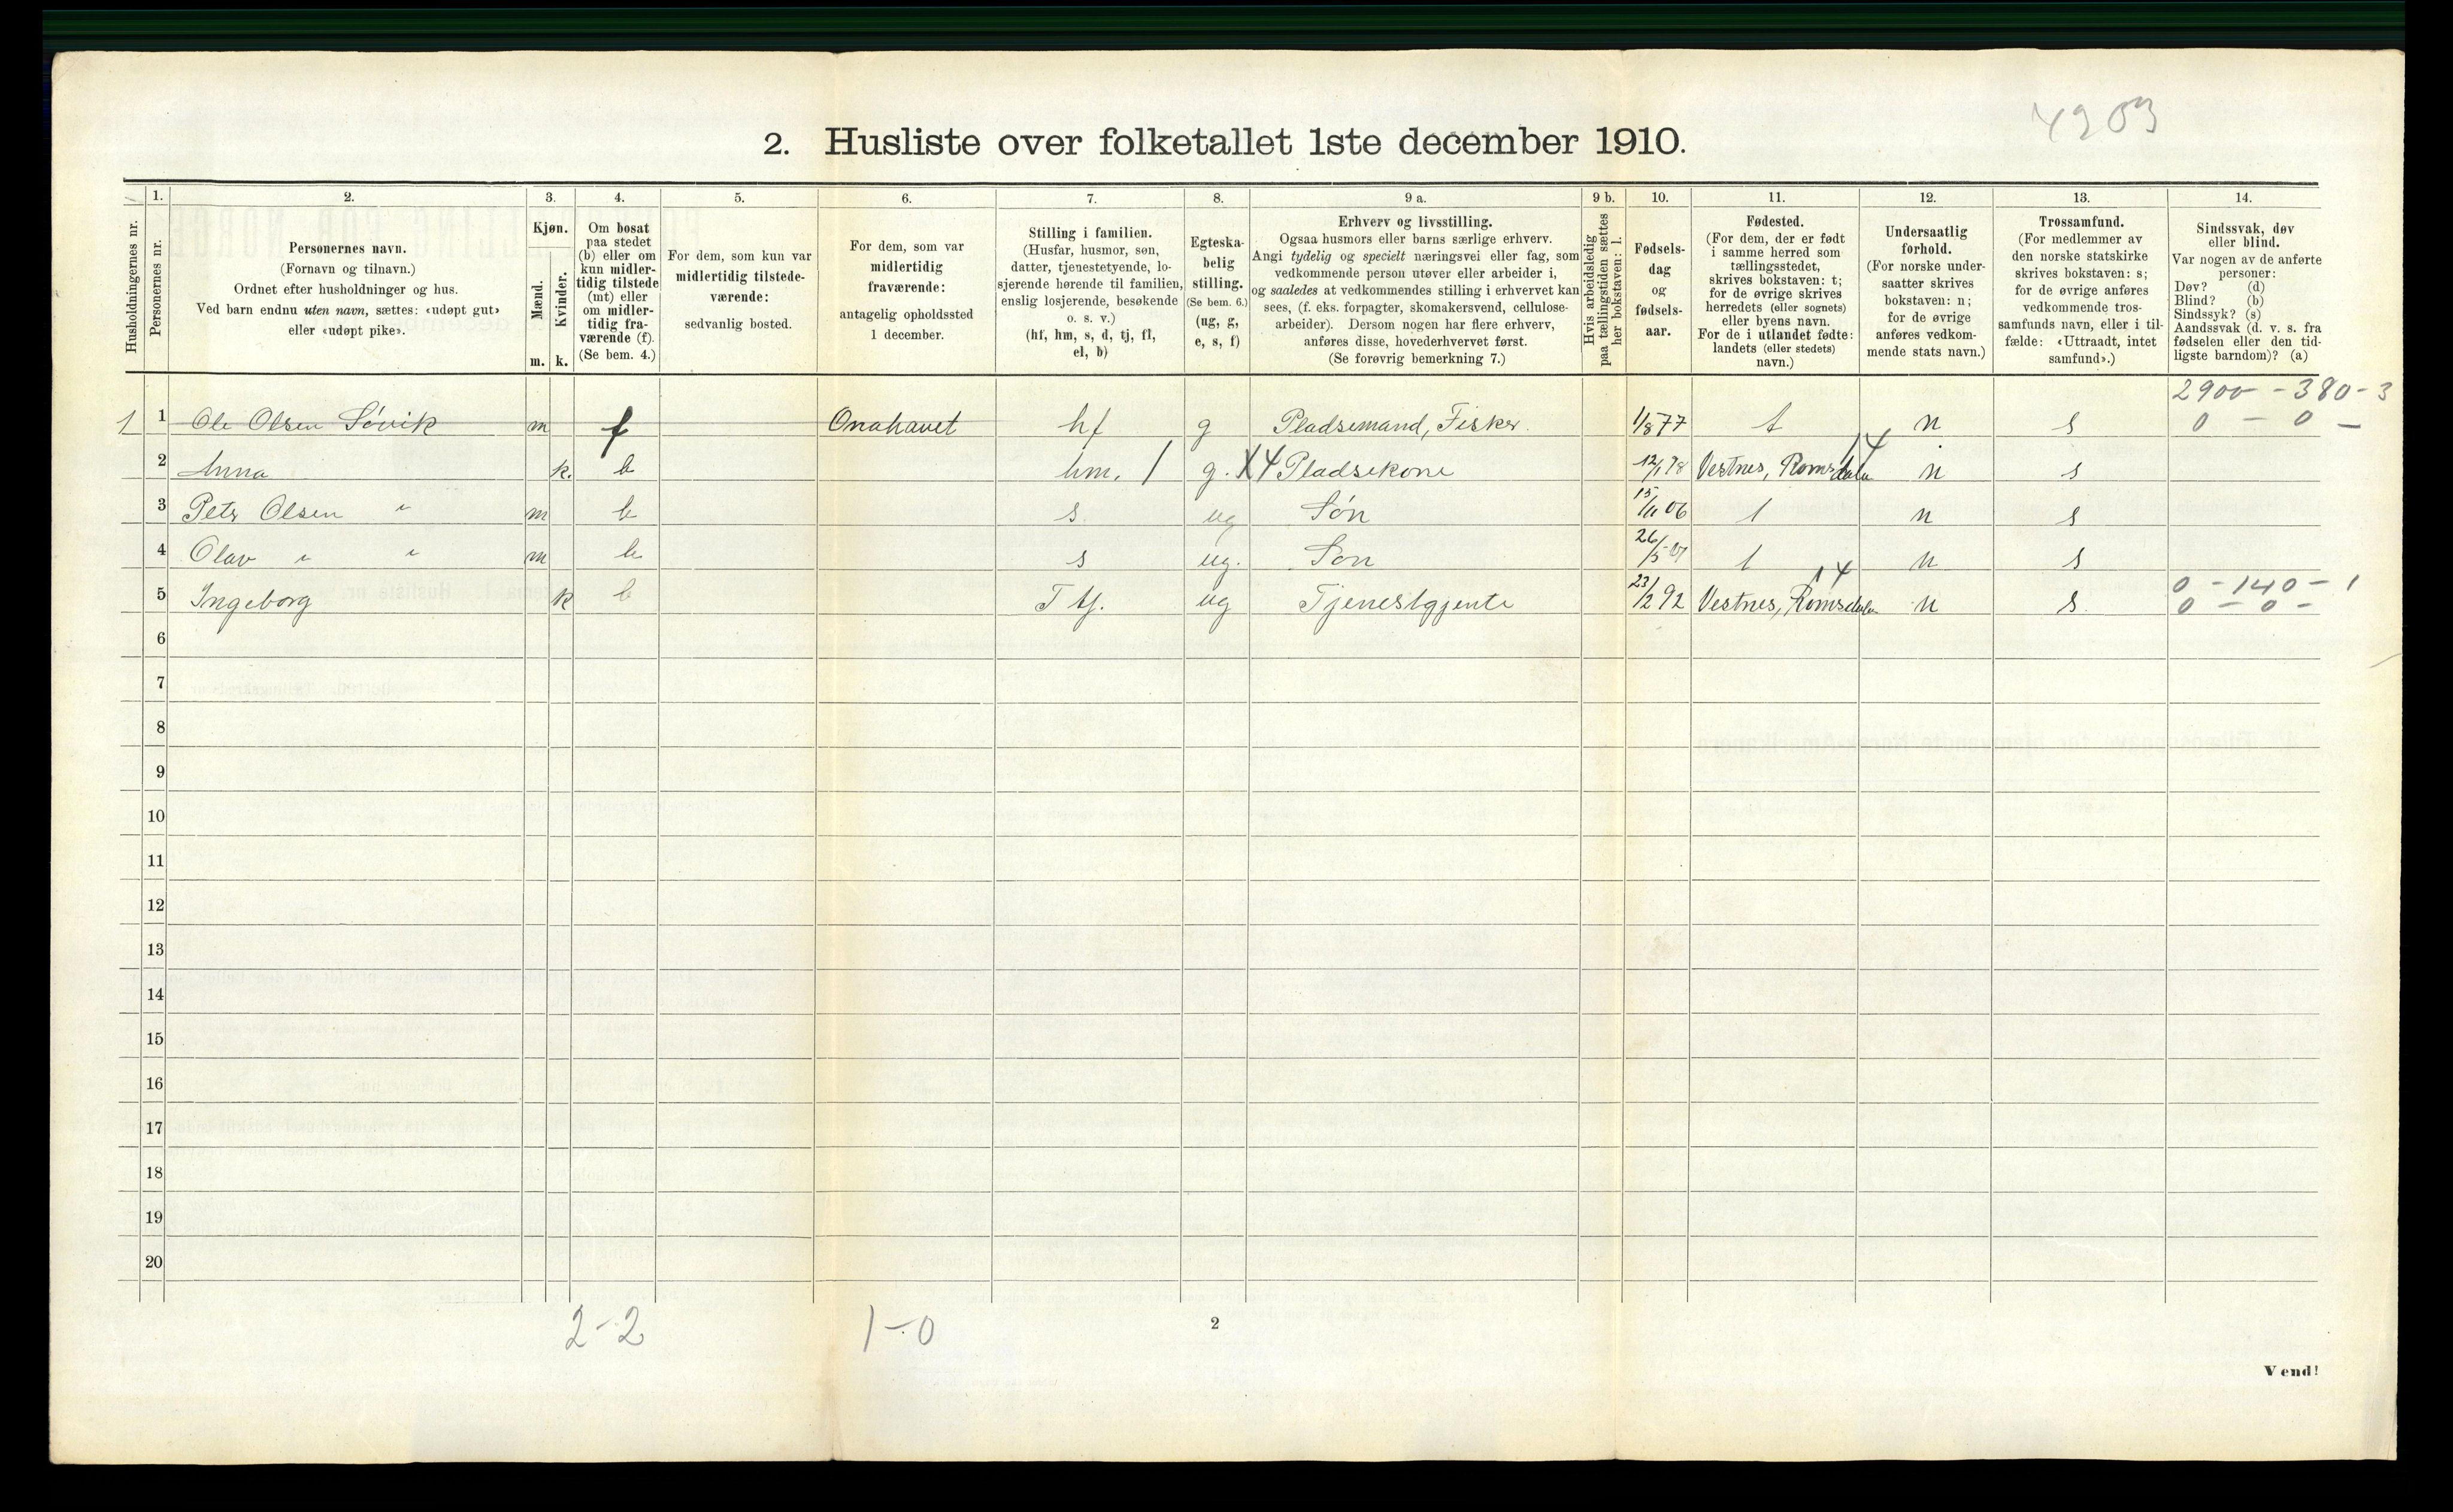 4203
2. Husliste over folketallet 1ste december 1910.
Husholdningernes nr.
1.
Personernes nr.
2.
Personernes navn.
(Fornavn og tilnavn.)
Ordnet efter husholdninger og hus.
Ved barn endnu uten navn, sættes: «udøpt gut»
eller «udøpt pike».
3.
Kjøn.
Mænd.
Kvinder.
m. k.
4.
Om bosat
paa stedet
(b) eller om
kun midler-
tidig tilstede
(mt) eller
om midler-
tidig fra-
værende (f).
(Se bem. 4.)
5.
For dem, som kun var
midlertidig tilstede-
værende:
sedvanlig bosted.
6.
For dem, som var
midlertidig
fraværende:
antagelig opholdssted
1 december.
7.
Stilling i familien.
(Husfar, husmor, søn,
datter, tjenestetyende, lo-
sjerende hørende til familien,
enslig losjerende, besøkende
o. s. v.)
(hf, hm, s, d, tj, fl,
el, b)
8.
Egteska-
belig
stilling.
(Se bem. 6.)
(ug, g,
e, s, f)
9 a.
Erhverv og livsstilling.
Ogsaa husmors eller barns særlige erhverv.
Angi tydelig og specielt næringsvei eller fag, som
vedkommende person utøver eller arbeider i,
og saaledes at vedkommendes stilling i erhvervet kan
sees, (f. eks. forpagter, skomakersvend, cellulose-
arbeider). Dersom nogen har flere erhverv,
anføres disse, hovederhvervet først.
(Se forøvrig bemerkning 7.)
9 b.
Hvis arbeidsledig
paa tællingstiden sættes
her bokstaven: l.
10.
Fødsels-
dag
og
fødsels-
aar.
11.
Fødested.
(For dem, der er født
i samme herred som
tællingsstedet,
skrives bokstaven: t;
for de øvrige skrives
herredets (eller sognets)
eller byens navn.
For de i utlandet fødte:
landets (eller stedets)
navn.)
12.
Undersaatlig
forhold.
(For norske under-
saatter skrives
bokstaven: n;
for de øvrige
anføres vedkom-
mende stats navn.)
13.
Trossamfund.
(For medlemmer av
den norske statskirke
skrives bokstaven: s;
for de øvrige anføres
vedkommende tros-
samfunds navn, eller i til-
fælde: «Uttraadt, intet
samfund».)
14.
Sindssvak, døv
eller blind.
Var nogen av de anførte
personer:
Døv? (d)
Blind? (b)
Sindssyk? (s)
Aandssvak (d. v. s. fra
fødselen eller den tid-
ligste barndom)? (a)
2900 - 380 - 3
1 1 Ole Olsen Søvik m f Onahavet hf g Pladsemand, Fisker. 1/8 77 t n s 0 - 0 -
2 Anna k. b hm. 1 g. X4 Pladsekone 12/1 78 Vestnes, Romsdalen 14 n s
3 Petr Olsen " m b s ug Søn 15/11 06 t n s
4 Olav " " m b s ug. Søn 26/5 07 t n s
0 - 140 - 1
5 Ingeborg k b T tj. ug Tjenestgjente 23/2 92 Vestnes, Romsdalen 14 n s 0 - 0 -
6
7
8
9
10
11
12
13
14
15
16
17
18
19
20
2-2 1-0
2
Vend!